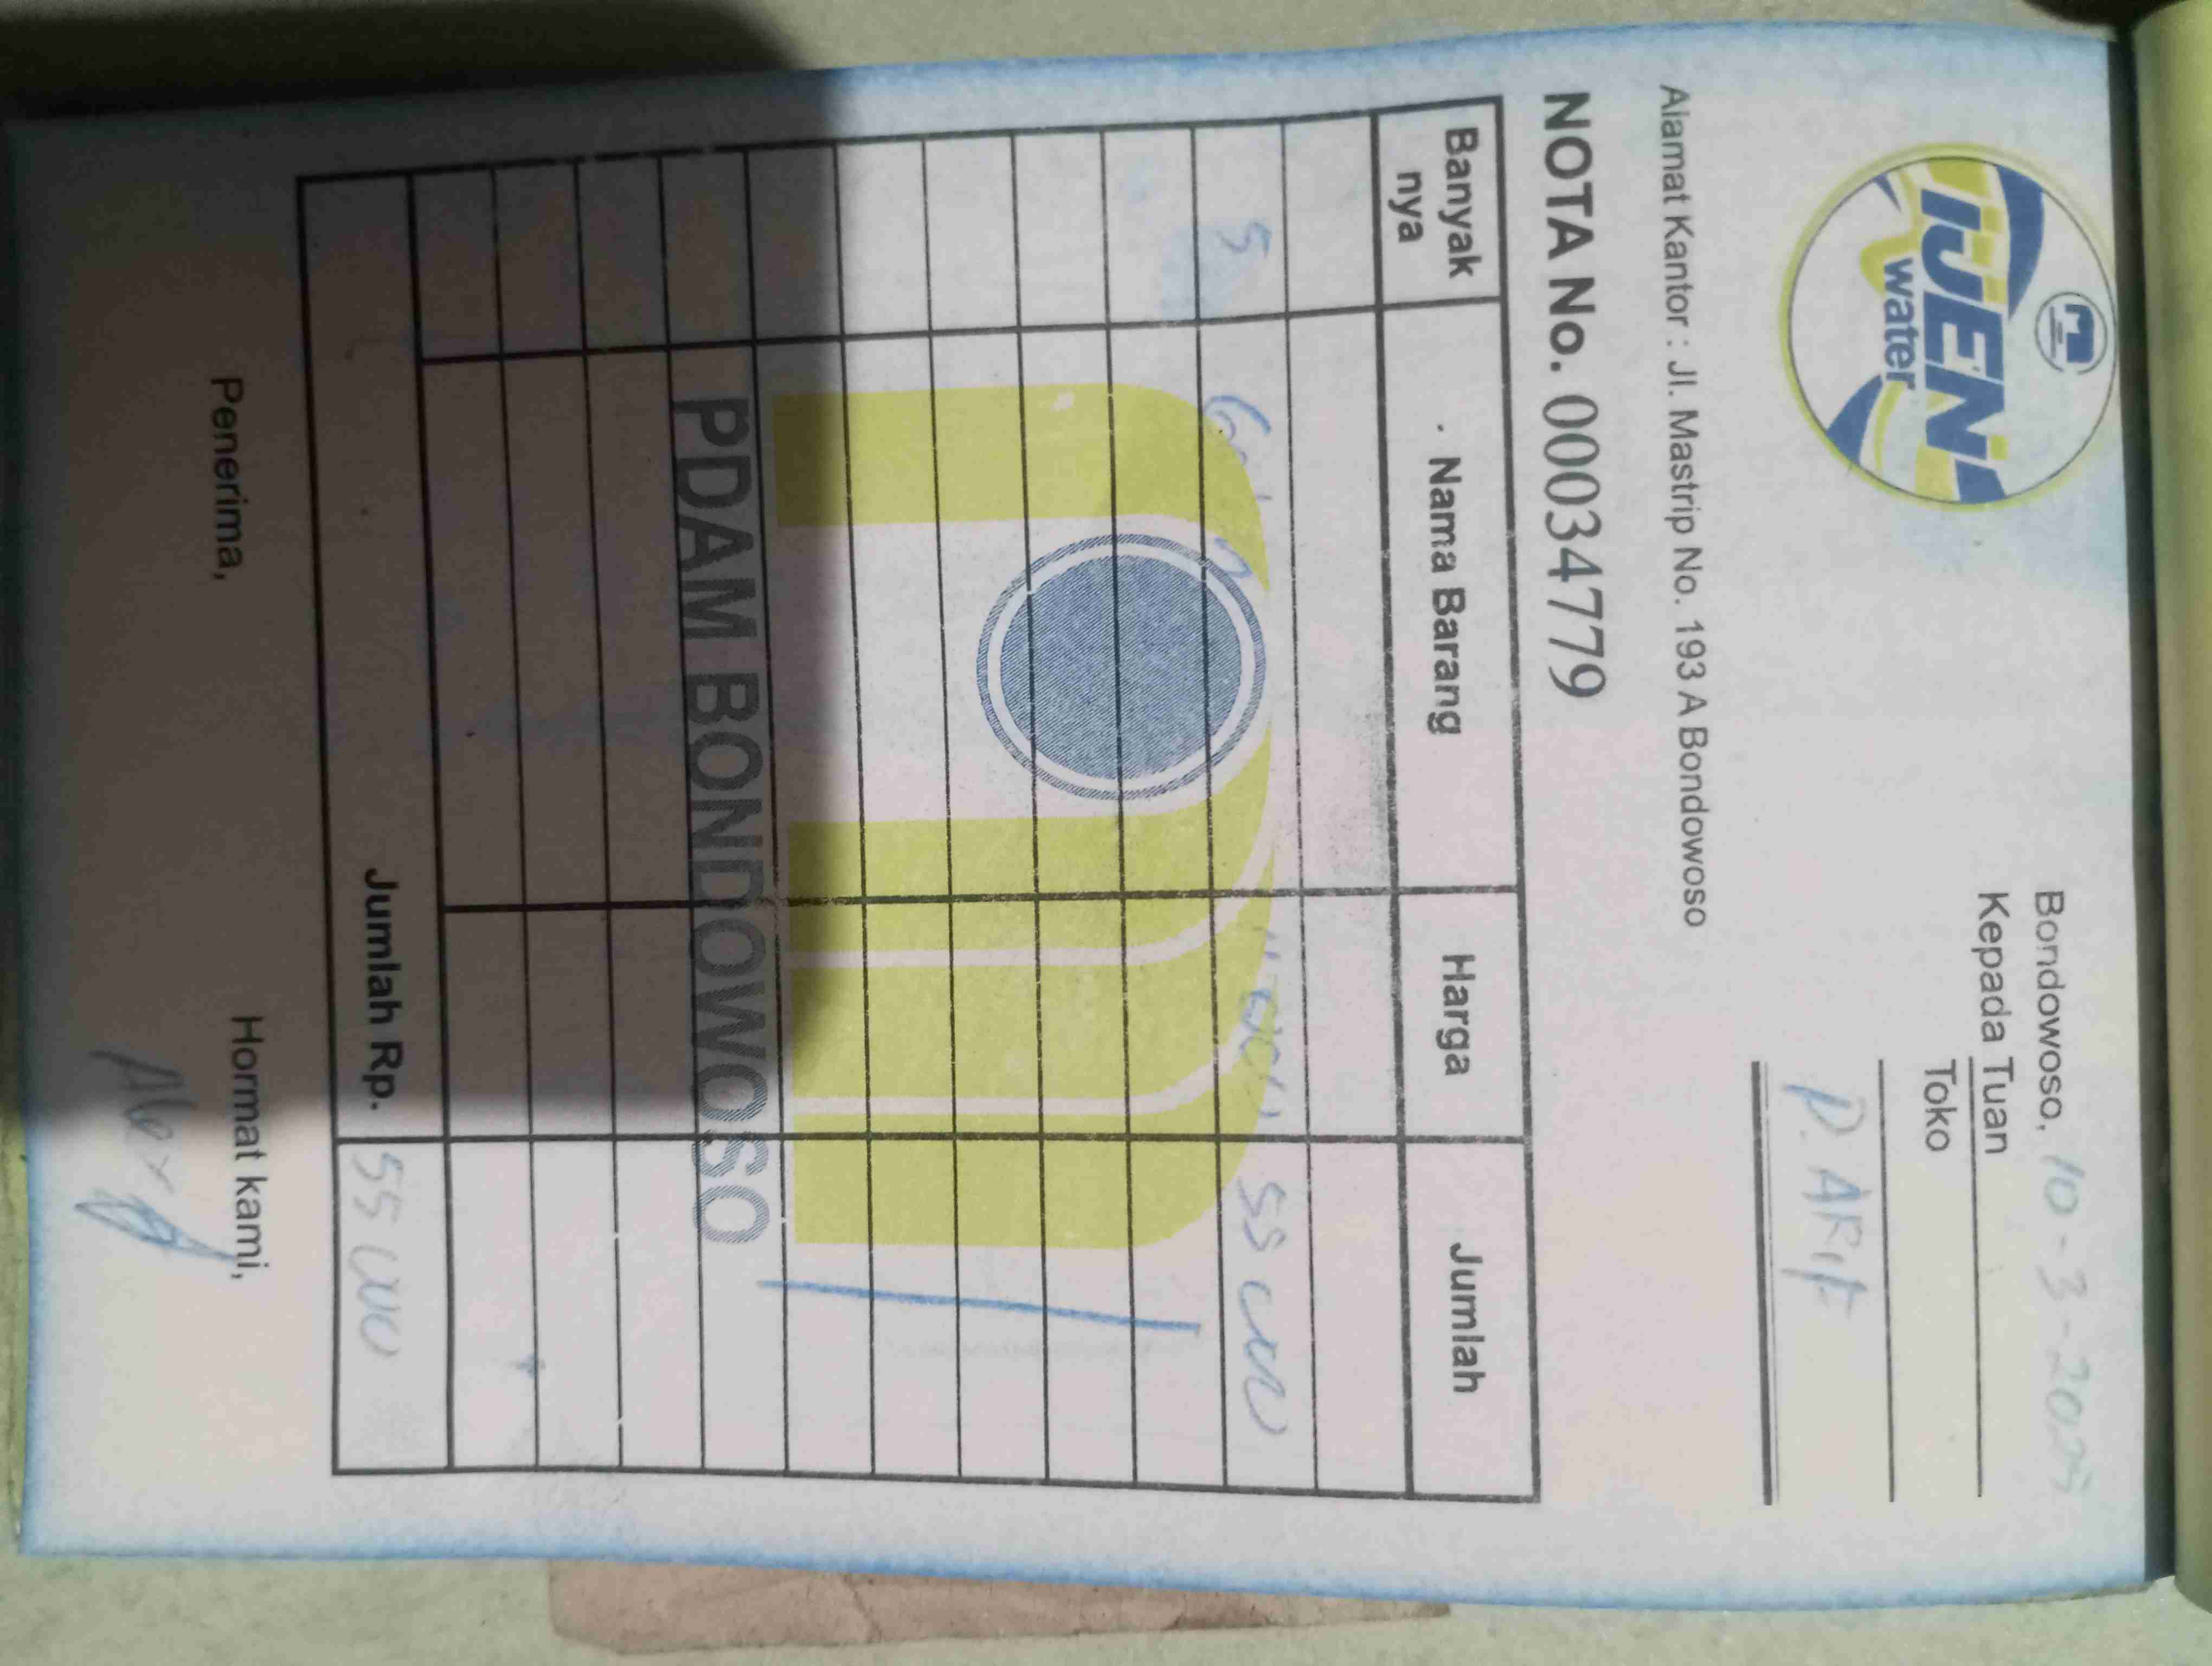 IJEN
water
Bondowoso, 10 - 3 - 2025
Kepada Tuan
Toko
P. ARif
Alamat Kantor : Jl. Mastrip No. 193 A Bondowoso
NOTA No. 00034779
Banyak nya Nama Barang Harga Jumlah
5 11 000 55 000
PDAM BONDOWOSO
Jumlah Rp. 55 000
Penerima, Hormat kami,